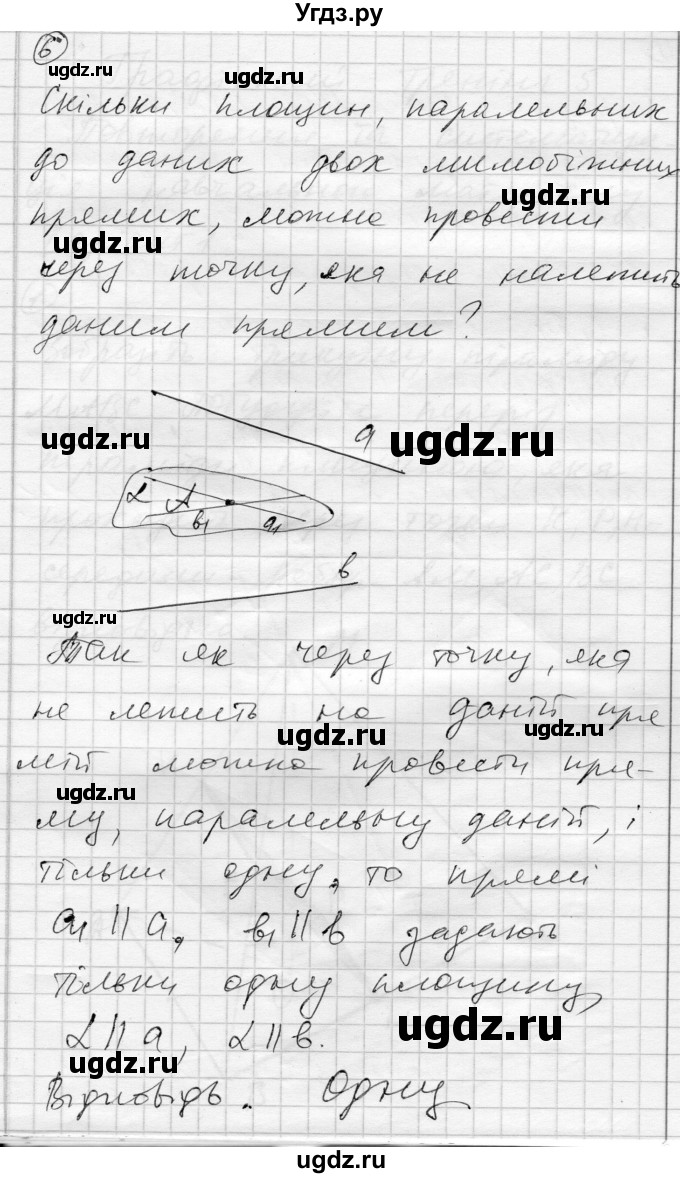 Угдз.ру
6
ugdz.ru ugdz.ru
Скільки площин, паралельних
до даних двох мимобіжних
ugdz.ru
прямих, можна провести
ugdz.ru
через точку, яка не належить
даним прямим?
a
ugdz.ru ugdz.ru
α A
b₁ a₁
b
ugdz.ru
Так як через точку, яка
не лежить на даній пря
ugdz.ru ugdz.ru
мій можна провести пря-
ugdz.ru
му, паралельну даній, і
тільки одну, то прямі
a₁ || a, b₁ || b задають
тільки одну площину,
ugdz.ru
α || a, α || b.
ugdz.ru
Відповідь. Одну
ugdz.ru